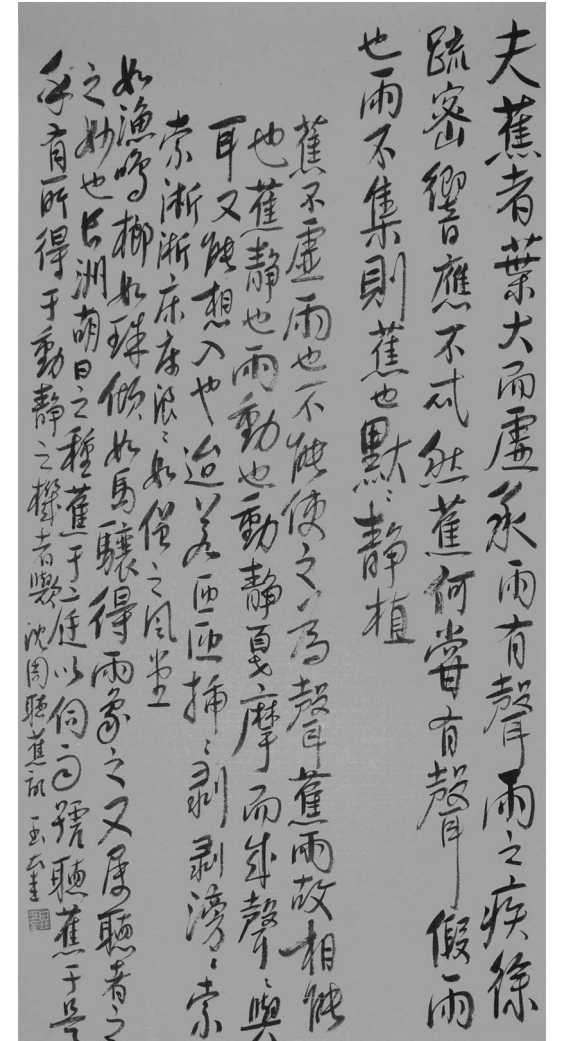 夫蕉者葉大而虛承雨有聲雨之疾徐
疏密響應不忒然蕉何嘗有聲假雨
也雨不集則蕉也默〻静植
蕉不虛雨也不能使之為聲蕉雨故相能
也蕉静也雨動也動静戛摩而成聲〻與
耳又能想入也迨若匝匝插〻剥剥滂〻索
索淅淅床床浪〻如僧之风堂
如漁鳴榔如珠傾如馬驤得雨象之又属聽者之
之妙也長洲萌日之種蕉于庭以伺雨號聽蕉于是
乎有所得于動静之機者歟 沈周聽蕉記 玉奎